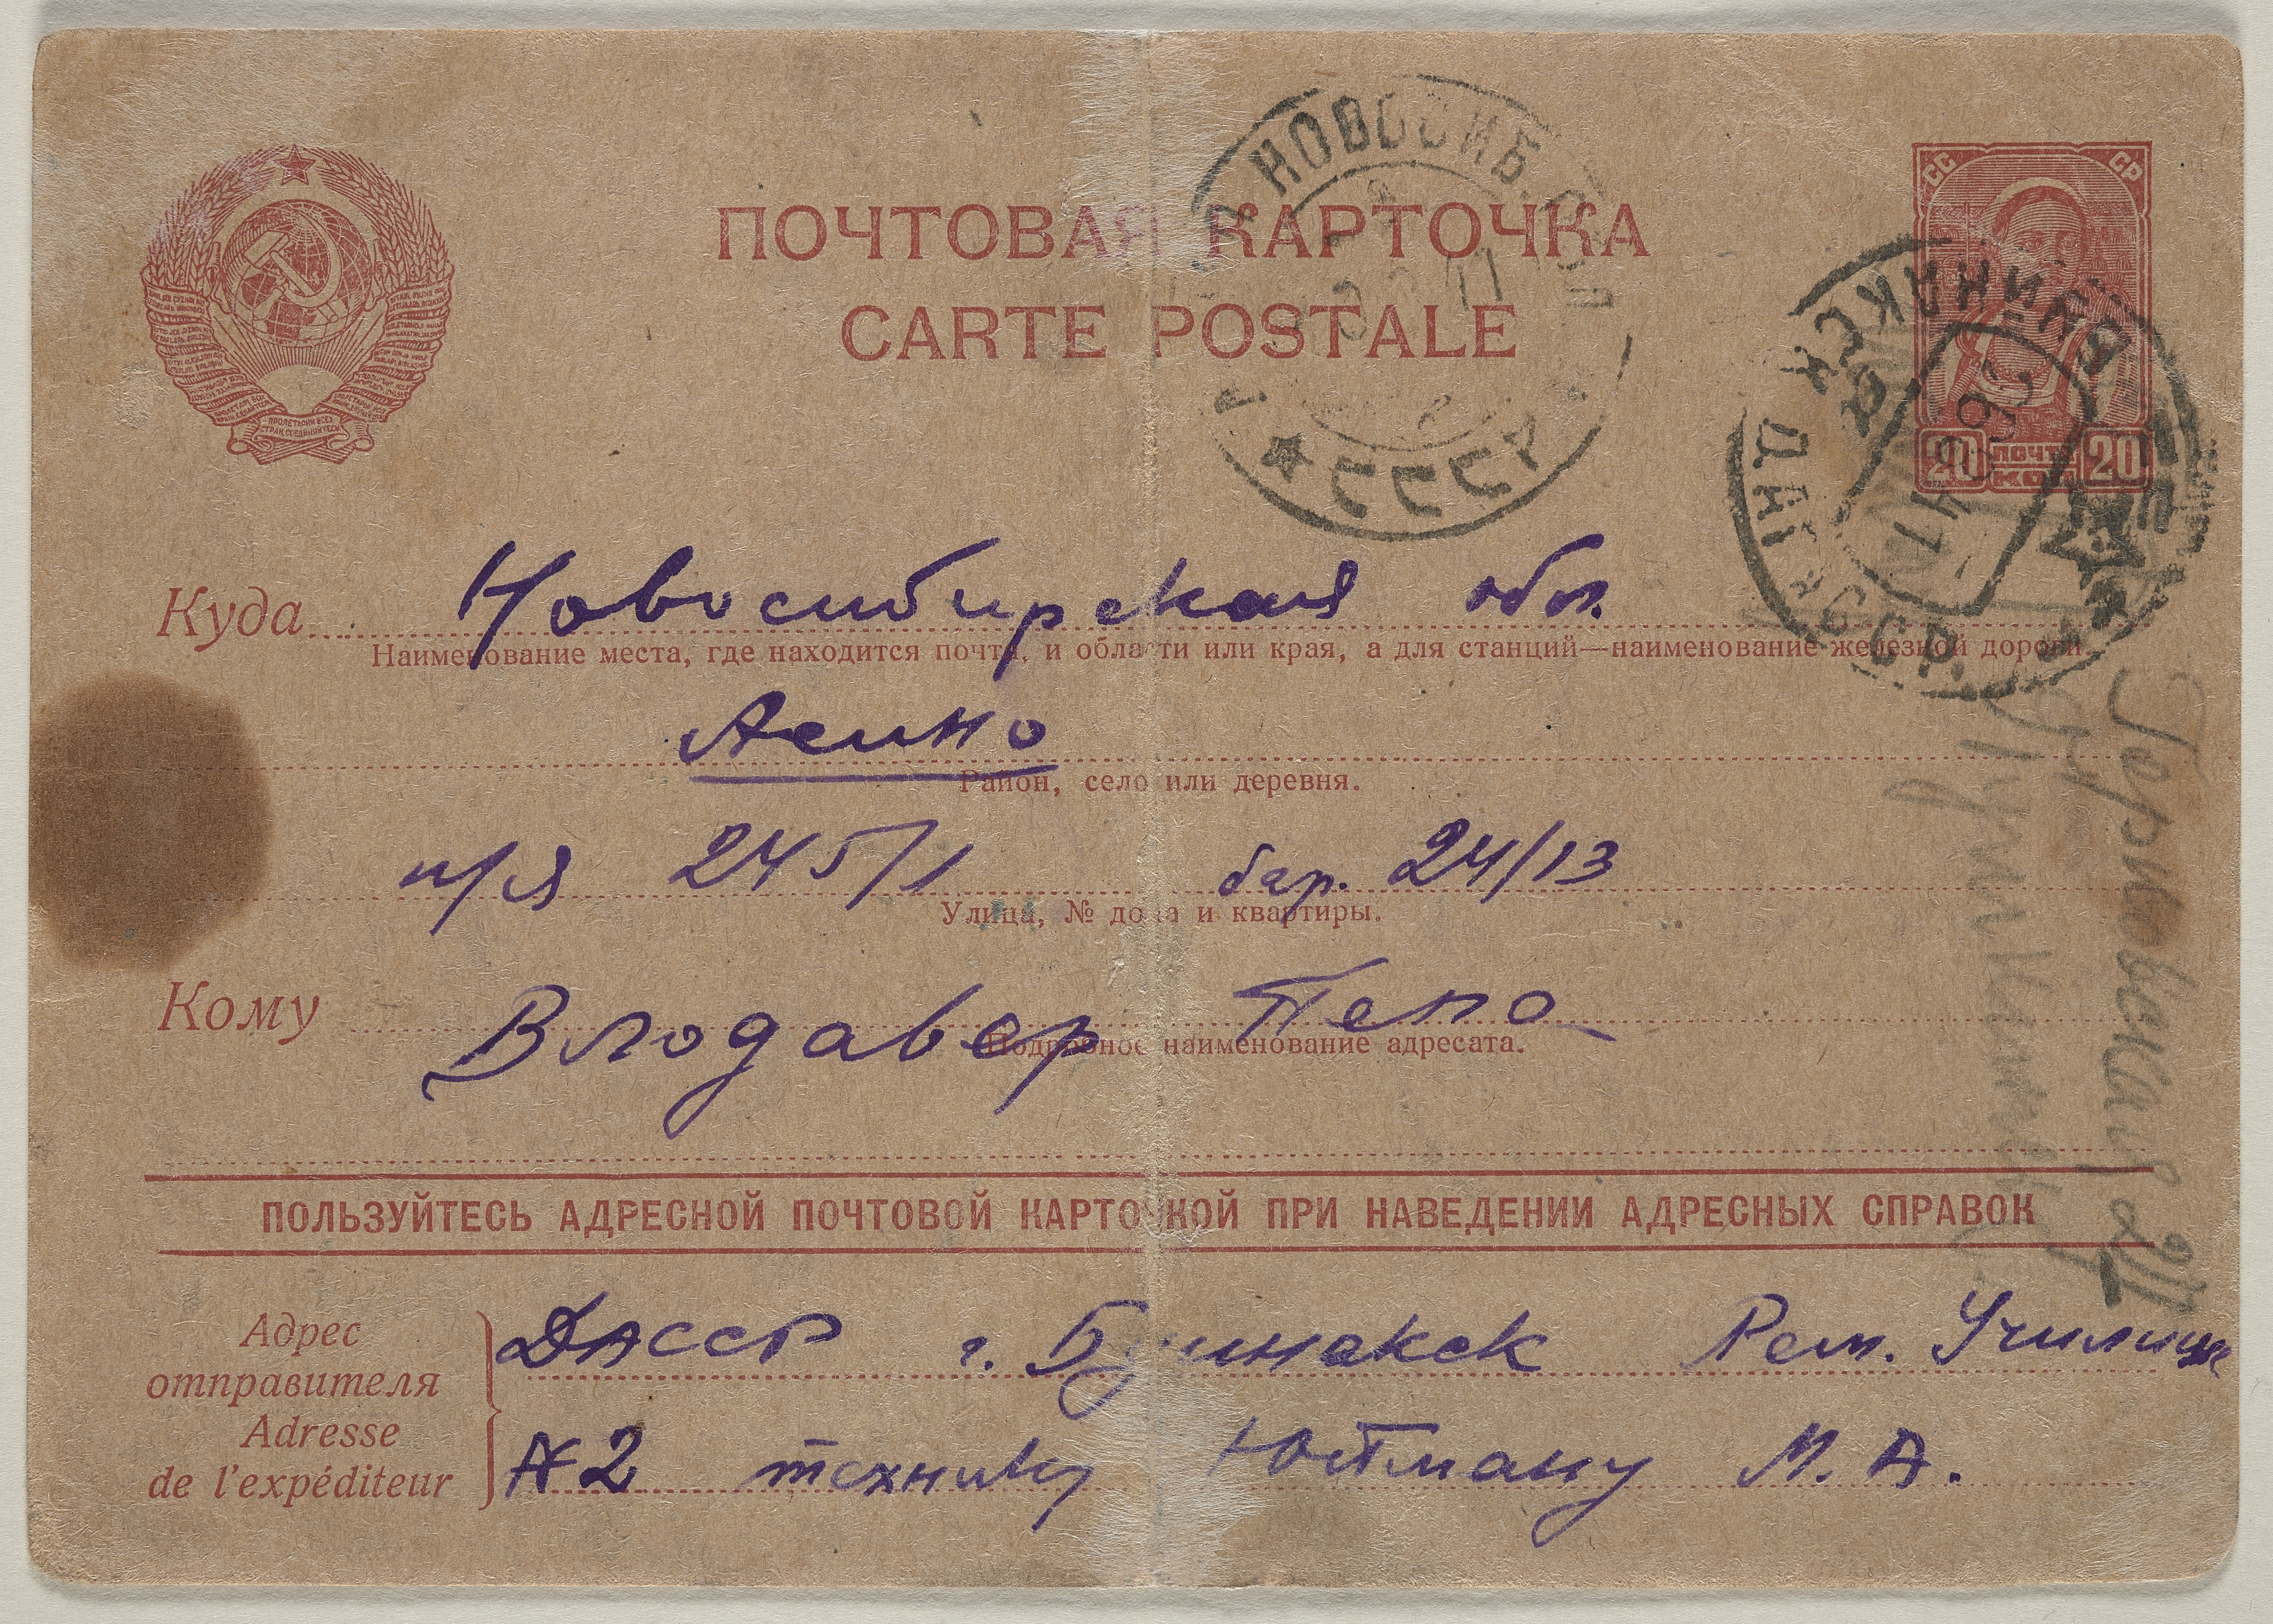 ПОЧТОВАЯ КАРТОЧКА
CARTE POSTALE
СС СР
20 ПОЧТА 20
КОП
НОВОСИБ.
БУЙНАКСК ДАГ.
СССР
Куда Новосибирская обл.
Наименование места, где находится почта, и области или края, а для станций—наименование железной дороги
Асино
Район, село или деревня.
п/я 245/1 бар. 24/13
Улица, № дома и квартиры.
Кому Влодавер Пепа
Подробное наименование адресата.
ПОЛЬЗУЙТЕСЬ АДРЕСНОЙ ПОЧТОВОЙ КАРТОЧКОЙ ПРИ НАВЕДЕНИИ АДРЕСНЫХ СПРАВОК
Адрес
отправителя
Adresse
de l'expéditeur
ДАССР г. Буйнакск Рем. Училище
№2 технику Юйтману М. А.